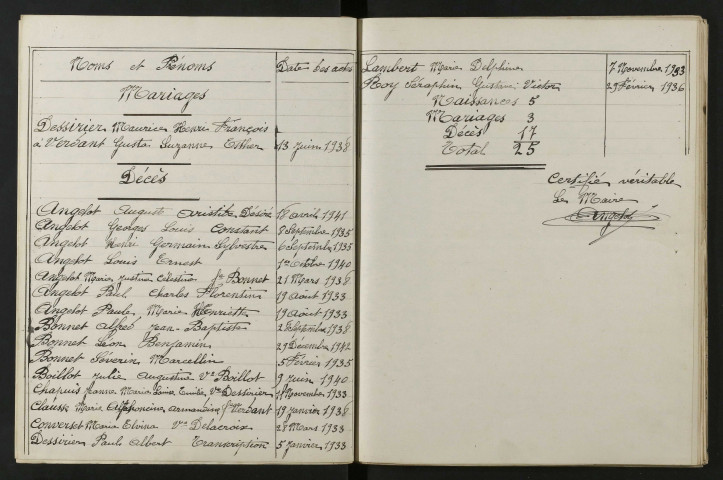 Noms et Prénoms Date des actes
Mariages
Dessirier Maurice Henri François
à Verdant Gusta Suzanne Esther 13 Juin 1938
Décès
Angelot August Aristide Désiré 18 avril 1941
Angelot Georges Louis Constant 8 Septembre 1935
Angelot Henri Germain Sylvestre 6 Septembre 1935
Angelot Louis Ernest 1er Octobre 1940
Angelot Marie Justine Célestine fe Bonnet 21 Mars 1938
Angelot Paul Charles Florentin 19 Août 1933
Angelot Paule Marie Henriette 19 Août 1933
Bonnet Alfred Jean-Baptiste 2 Septembre 1938
Bonnet Léon Benjamin 29 Décembre 1942
Bonnet Séverin Marcellin 5 Février 1935
Boillot Julie Augustine Ve Boillot 9 Juin 1940
Chapuis Jeanne Marie Louise Emilie Ve Dessirier Novembre 1933
Clausse Marie Alphonsine Armandine fe Verdant 19 Janvier 1938
Converset Maria Elvina Ve Delacroix 28 Mars 1933
Dessirier Paul Albert Transcription 5 Janvier 1933
Lambert Marie Delphine 7 Novembre 1933
Roy Séraphin Gustave Victor 29 Février 1936
Naissances 5
Mariages 3
Décès 17
Total 25
Certifié véritable
Le Maire
Angelot